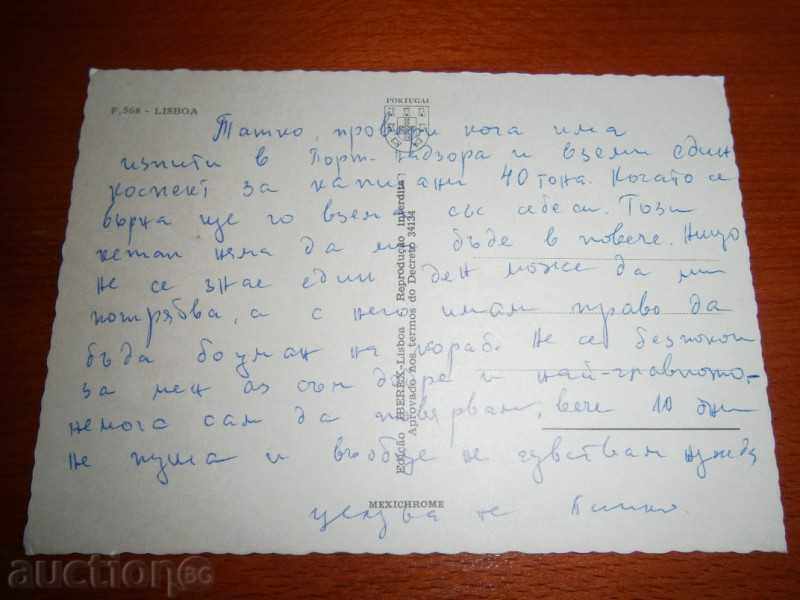 P.568 - LISBOA
PORTUGAL
Татко, провери кога има
изпити в Порт-надзора и вземи един
коспект за капитани 40 тона. Когато се
върна ще го взема със себе си. Този
няма да ми бъде в повече. Нищо
не се знае един ден може да ми
потрябва, а с него имам право да
бъда боцман на кораб. Не се безпокой
за мен аз съм добре и най-главното,-
немога сам да повярвам, вече 10 дни
не пуша и въобще не чувствам нужда
целува те
Edição IBEREX-Lisboa Reprodução interdita
Aprovado nos termos do Decreto 34134
MEXICHROME
auction BG